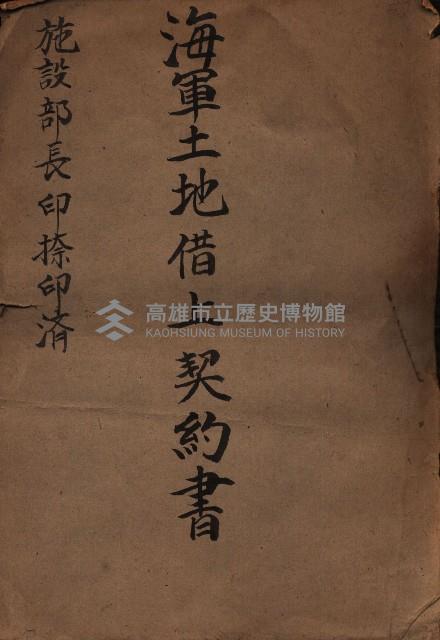 海軍土地借上契約書
施設部長印捺印済
高雄市立歷史博物館
KAOHSIUNG MUSEUM OF HISTORY